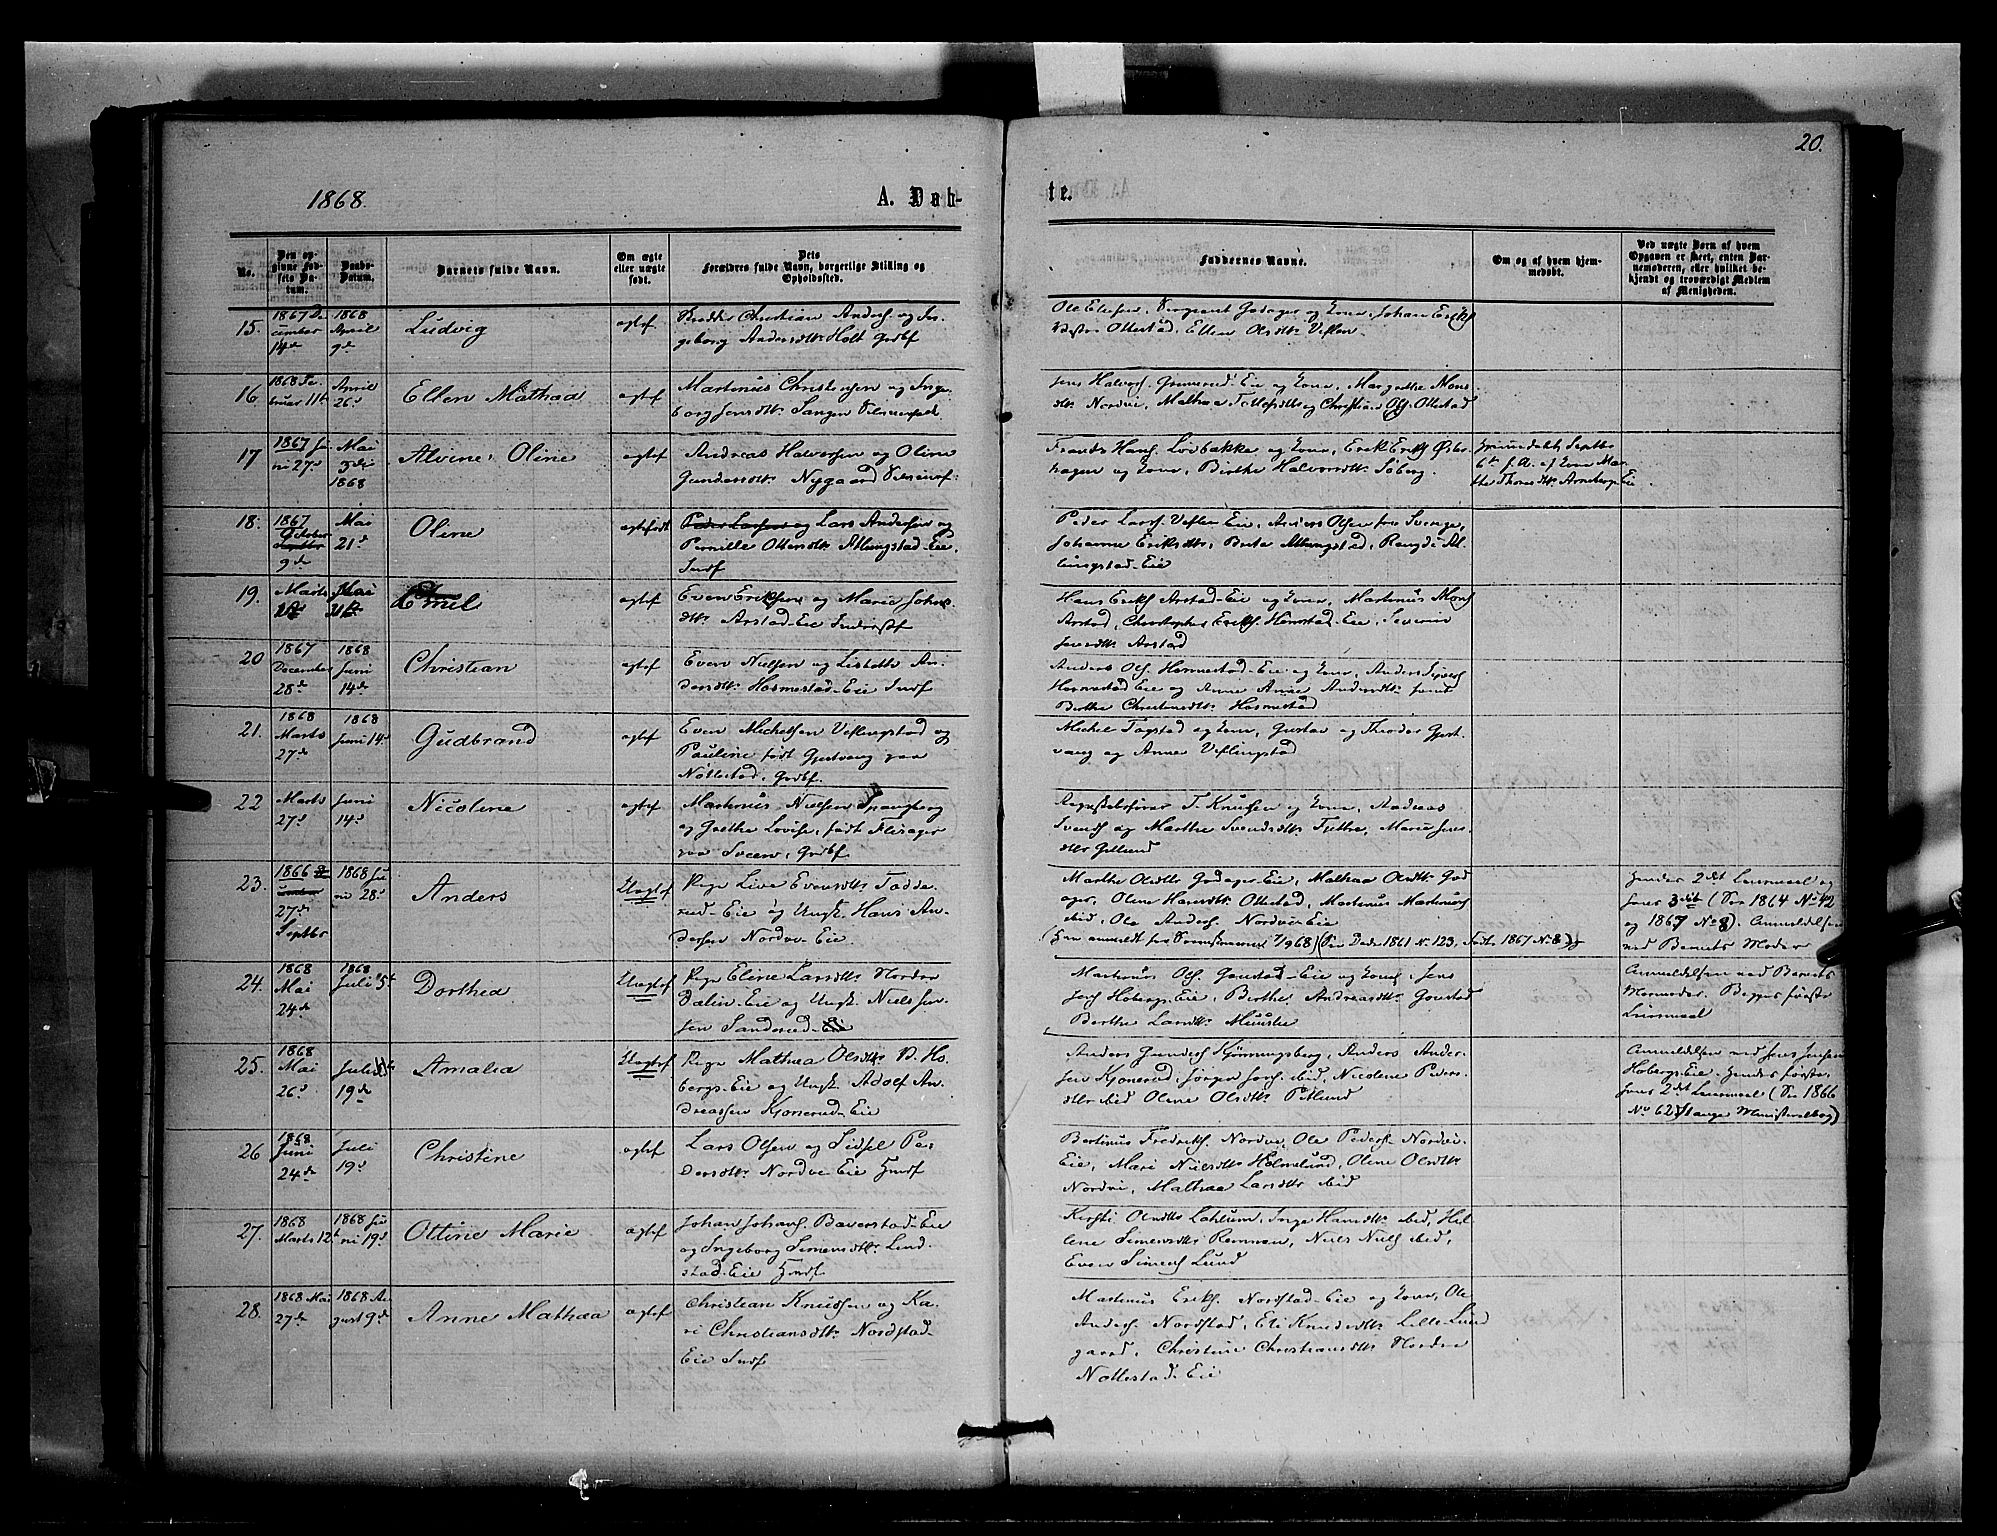 20.
1868.
A. Døb-
te.
No.
Den op-
givne Fød-
sels Da-
tum.
Daabs-
Datum.
Barnets fulde Navn.
Om ægte
eller uægte
født.
Dets
Forældres fulde Navn, borgerlige Stilling og
Opholdssted.
Faddernes Navne.
Om og af hvem hjem-
medøbt.
Ved uægte Børn af hvem
Opgaven er skeet, enten Bar-
nemoderen, eller hvilket be-
kjendt og troværdigt Medlem
af Menigheden.
15.
1867 De
cember
14de
1868
April
9de
Ludvig
ægtef
Christian Anders. og In-
geborg Andersdtr. Holt Grdbf
Ole Elefsen, Sergeant Godager og Kone, Johan Eriks
Vestre Ottestad, Ellen Olsdtr. Veflen.
16.
1868 Fe-
bruar 11te
April
26d
Ellen Mathea
ægtef
Martinus Christensen og Inge-
borg Jensdtr. Sangen
Jens Halvors. Eie og Kone, Margrethe Mons-
dtr. Nordvi, Mathea og Christian Ols. Ottestad
17
1867 Ju
ni 27d
Mai
3die
1868
Alvine, Oline
ægtef
Andreas Halvorsen og Oline
Gundersdtr. Nygaard
Frands Hans. Lövbakke og Kone, Erik Eriks.
hagen og Kone, Birthe Halvorsdtr. Söberg.
Septbr
6te f. A. af Kone Mar-
the Thoresdtr. Arneberg Eie
18.
1867
October
9de
Mai
21de
Oline
ægtefødt
Peder Larsen og Lars Andersen og
Pernille Ottersdtr. Atlungstad-Eie,
Indf
Peder Lars. Veflen Eie, Anders Olsen fra Sverige,
Johanne Eriksdtr., Berte Atlungstad, Rangdi At-
lungstad-Eie
19.
Marts
Mai
21de
Emil
ægtef
Even Eriksen og Marie Johns-
dtr. Arstad-Eie
Hans Eriks. Arstad-Eie og Kone, Martinus Mons.
Arstad, Christopher Eriks. Hemstad-Eie, Severine
Jensdtr. Arstad
20
1867
December
28de
1868
Juni
14de
Christian
ægtef
Even Nielsen og Lisbeth An-
dersdtr. Hommestad-Eie Indf
Anders Ols. Hommestad-Eie og Kone, Anders
Hommestad Eie og Anne Andersdtr.
Berthe Christensdtr. Hommestad
21.
1868
Marts
27de
1868
Juni 14.d
Gudbrand
ægtef
Even Michelsen Veflingstad og
Pauline født Gjestvang paa
Nøttestad, Grdbf.
Michel Fogstad og Kone, Gustav og Theodor Gjest-
vang og Anne Veflingstad
22
Marts
27.d
Juni
14.d
Nicoline
ægtef
Martinus Nielsen Spangberg
og Grethe Lovise, født Flisager
paa Sveen, Grdbf.
Regnskabsfører T. Knutsen og Kone, Andreas
Svends og Marthe Svendsdtr. Tjette, Marie Jens-
dtr Gillund
23.
1866
27de
Septbr
1868 Ju
ni 28.
Anders
Uægtef
Pige Live Evensdtr. Fadde-
rud-Eie og Ungk. Hans An-
dersen Nordvi-Eie
Marthe Olsdtr. Godager-Eie, Mathea Olsdtr. God-
ager, Oline Hansdtr. Ottestad, Martinus Martinus.
ibid, Ole Anders. Nordvi-Eie
1867 No 8)
Hendes 2det Leiermaal og
hans 3die (Se 1864 No 42
og 1867 No 8). Anmeldelsen
ved Barnets Moder
24.
1868
Mai
24de
1868
Juli 5t.
Dorthea
Uægtef
Pige Eline Larsdtr. Nordre
Dælin-Eie og Ungk. Niels Jen-
sen Sanderud-Eie
Martinus Ols. Gaustad-Eie og Kone, Jens
Jens. Hoberg-Eie, Berthe Andreasdtr. Gaustad
Berthe Larsdtr. Munstre
Anmeldelsen ved Barnets
Mormoder. Begges første
Leiermaal
25.
1868
Mai
26d
Juli
19.de
Amalia
Uægtef
Pige Mathea Olsdtr. V. Ho-
bergs-Eie og Ungk. Adolf An-
dreassen Kjonerud-Eie
Anders Gunders. Kjörningsberg, Anders Ander-
sen Kjonerud, Jørgen Jens. ibid, Nicoline Peders-
dtr ibid Olene Olsdtr. Petlund
Anmeldelsen ved Jens Jensen
Hobergs-Eie. Hendes første,
hans 2det Leiermaal (Se 1866
No 62 Stange Ministerialbog)
26
1868
Juni
24de
Juli
19.d
Christine
ægtef
Lars Olsen og Sidsel Pe-
dersdtr. Nordvi-Eie Hmdf
Bertinus Fredriks. Nordvi, Ole Peders. Nordvi-
Eie, Mari Nielsdtr. Holmlund, Olene Olsdtr.
Nordvi, Mathea Larsdtr ibid
27.
1868
Marts 12t
1868 Ju-
ni 19.d
Ottine Marie
ægtef
Johan Johans. Baverstad-Eie
og Ingeborg Simensdtr. Lind-
stad-Eie Hmdf
Kirsti Olsdtr. Lahlum, Inge Hansdtr. ibid, Hel-
lene Simensdtr. Rommen, Niels Niels. ibid,
Even Simens. Lund
28.
1868 Mai
27de
1868 Au-
gust 9.de
Anne Mathea
ægtef
Christian Knudsen og Ka-
ri Christiansdtr. Nordstad-
Eie Indf
Martinus Eriks. Nordstad-Eie og Kone, Ole
Anders. Nordstad, Eli Knudsdtr. Lille-Lund-
gaard, Christine Christiansdtr. Nordre
Nøttestad-Eie